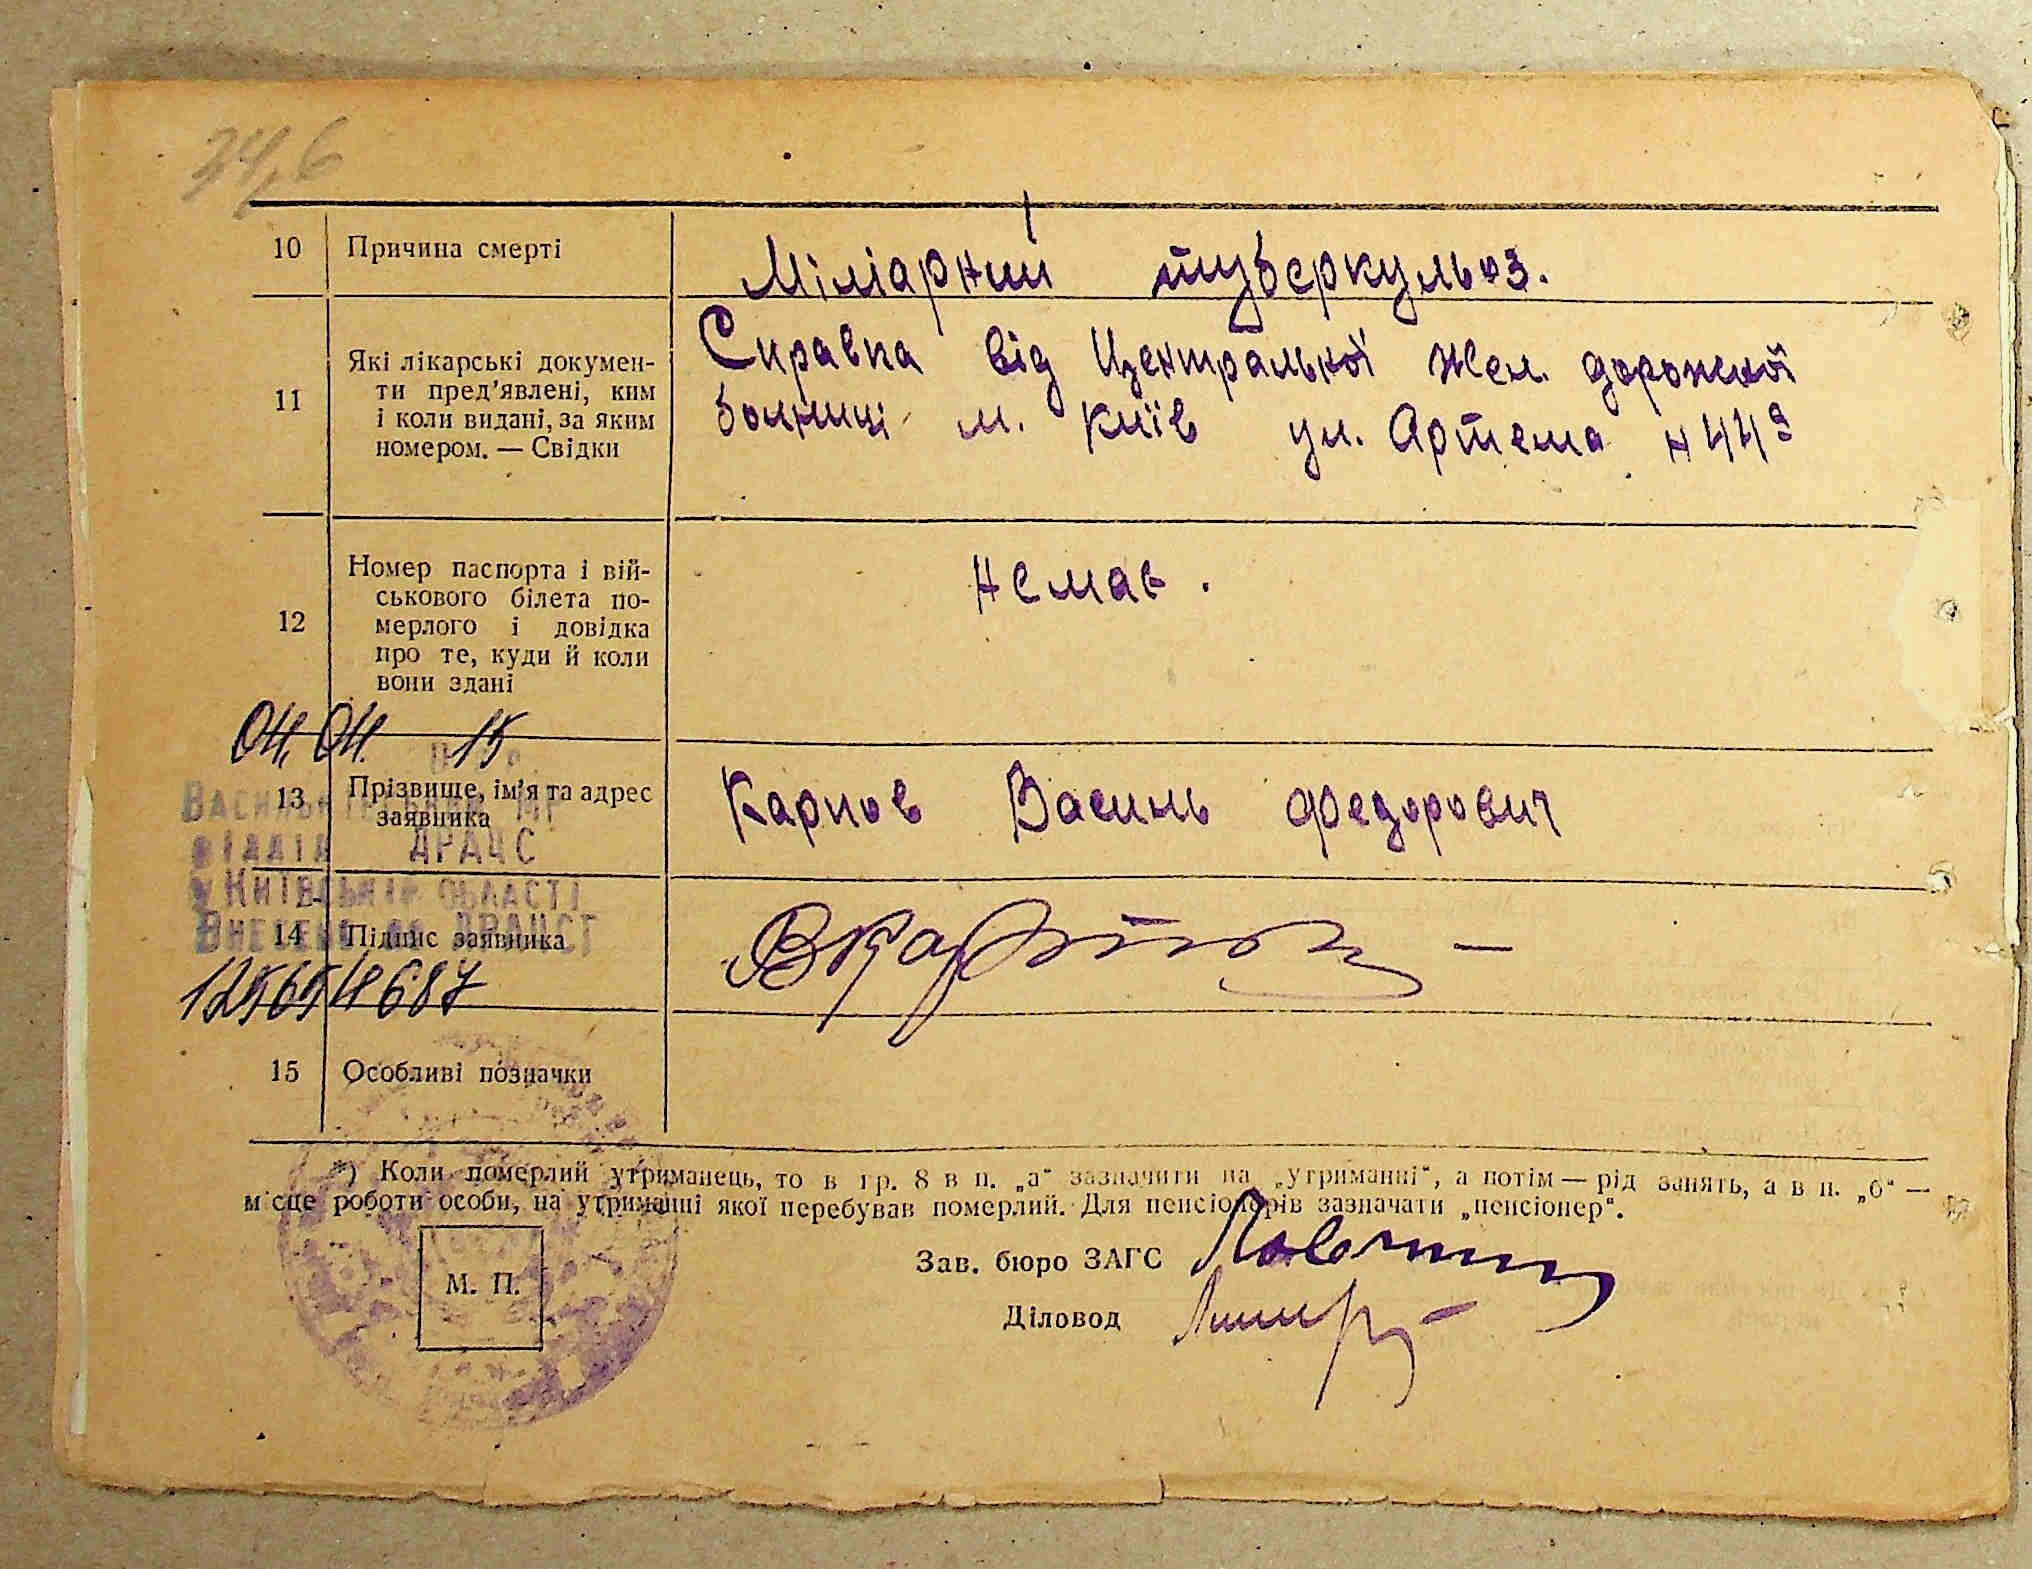 10 Причина смерті Міліарний туберкульоз.
Справка від Центральної Жел. дорожної
Які лікарські докумен-
ти пред'явлені, ким болниці м. Київ ул. Артема
11
і коли видані, за яким
номером. — Свідки
Номер паспорта і вій- Немає.
ськового білета по-
12 мерлого і довідка
про те, куди й коли
вони здані
04.04. 15
13 Прізвище, ім'я та адрес Карпов Василь Федорович
заявника
Васильківський МР
відділ ДРАЦС
у Київській області
Внесено до ДРАЦСГ
14 Підпис заявника ВКарпов
15 Особливі позначки
*) Коли померлий утриманець, то в гр. 8 в п. „а“ зазначити на „утриманні“, а потім — рід занять, а в п. „б“ —
місце роботи особи, на утриманні якої перебував померлий. Для пенсіонерів зазначати „пенсіонер“.
Зав. бюро ЗАГС
М. П.
Діловод